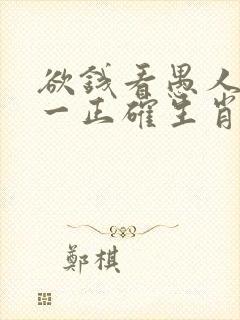 欲钱看愚人
一正確生肖
鄭棋